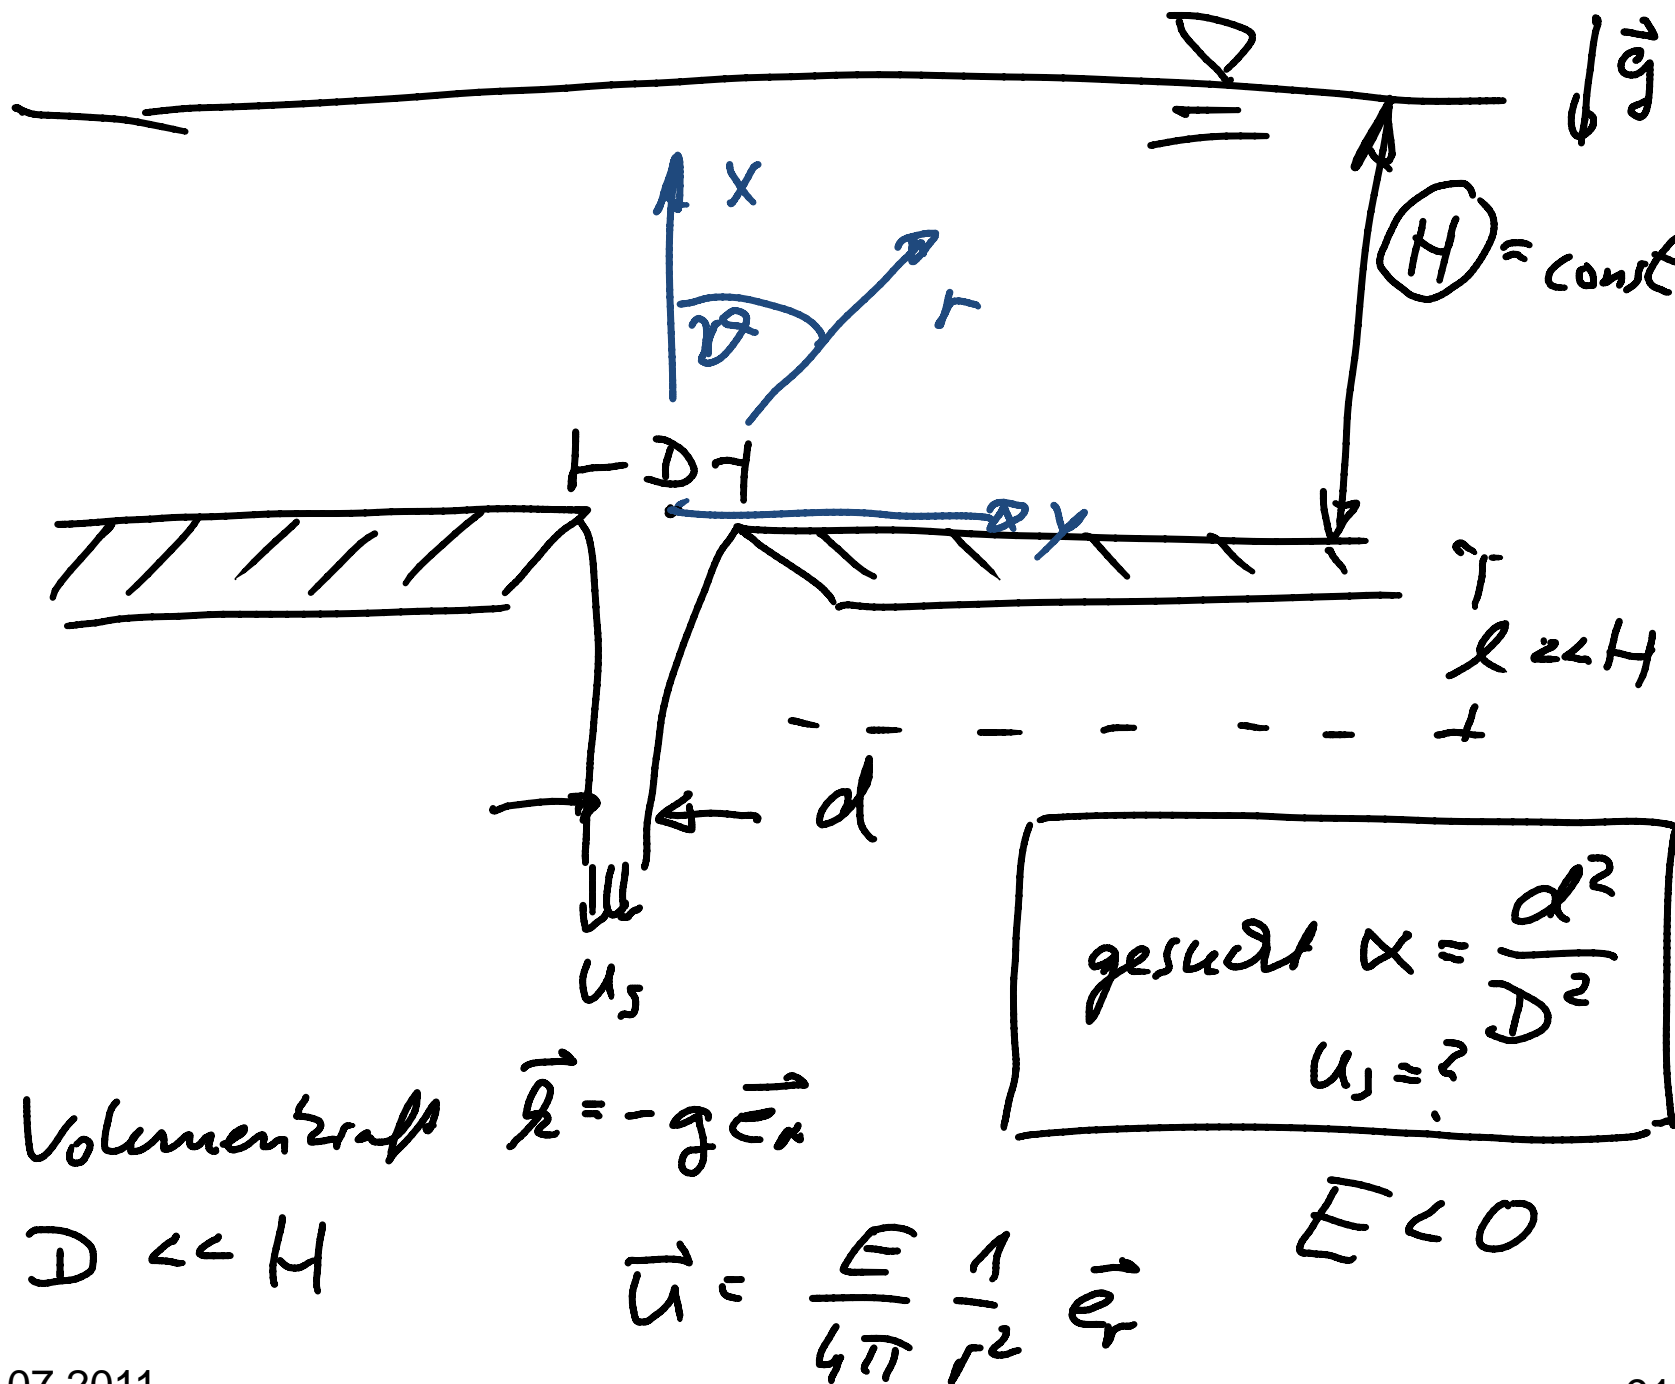 g⃗
x
H = const
r
ϑ
D
y
l << H
d
u_s
gesucht α = d²/D²
u_s = ?
Volumenkraft k⃗ = - g e⃗_x
D << H
E < 0
u⃗ = E/4π 1/r² e⃗_r
07.2011